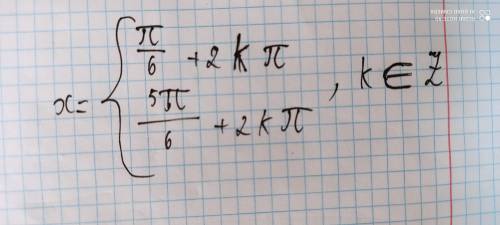 x = { π/6 + 2kπ
5π/6 + 2kπ , k ∈ Z